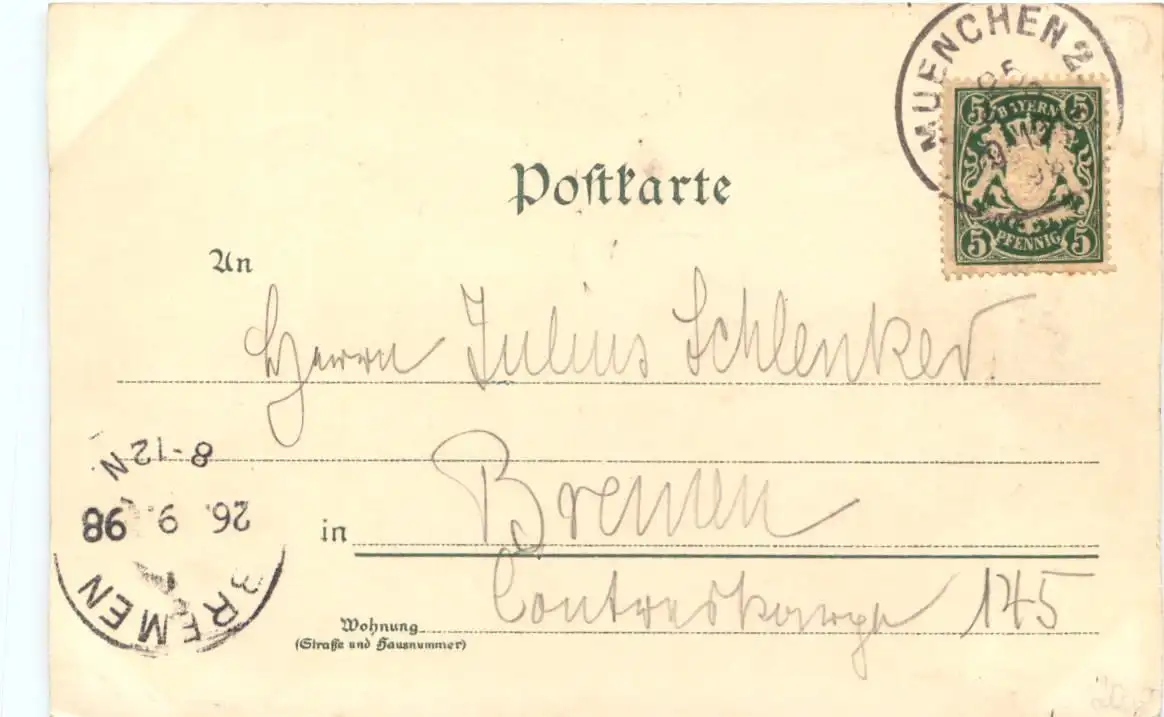 MUENCHEN 2
5 BAYERN 5
5 PFENNIG 5
Postkarte
An
Herrn Julius Schlenker.
in Bremen
Wohnung Contreskarpe 145
(Straße und Hausnummer)
BREMEN
26. 9. 98
8-12 N.